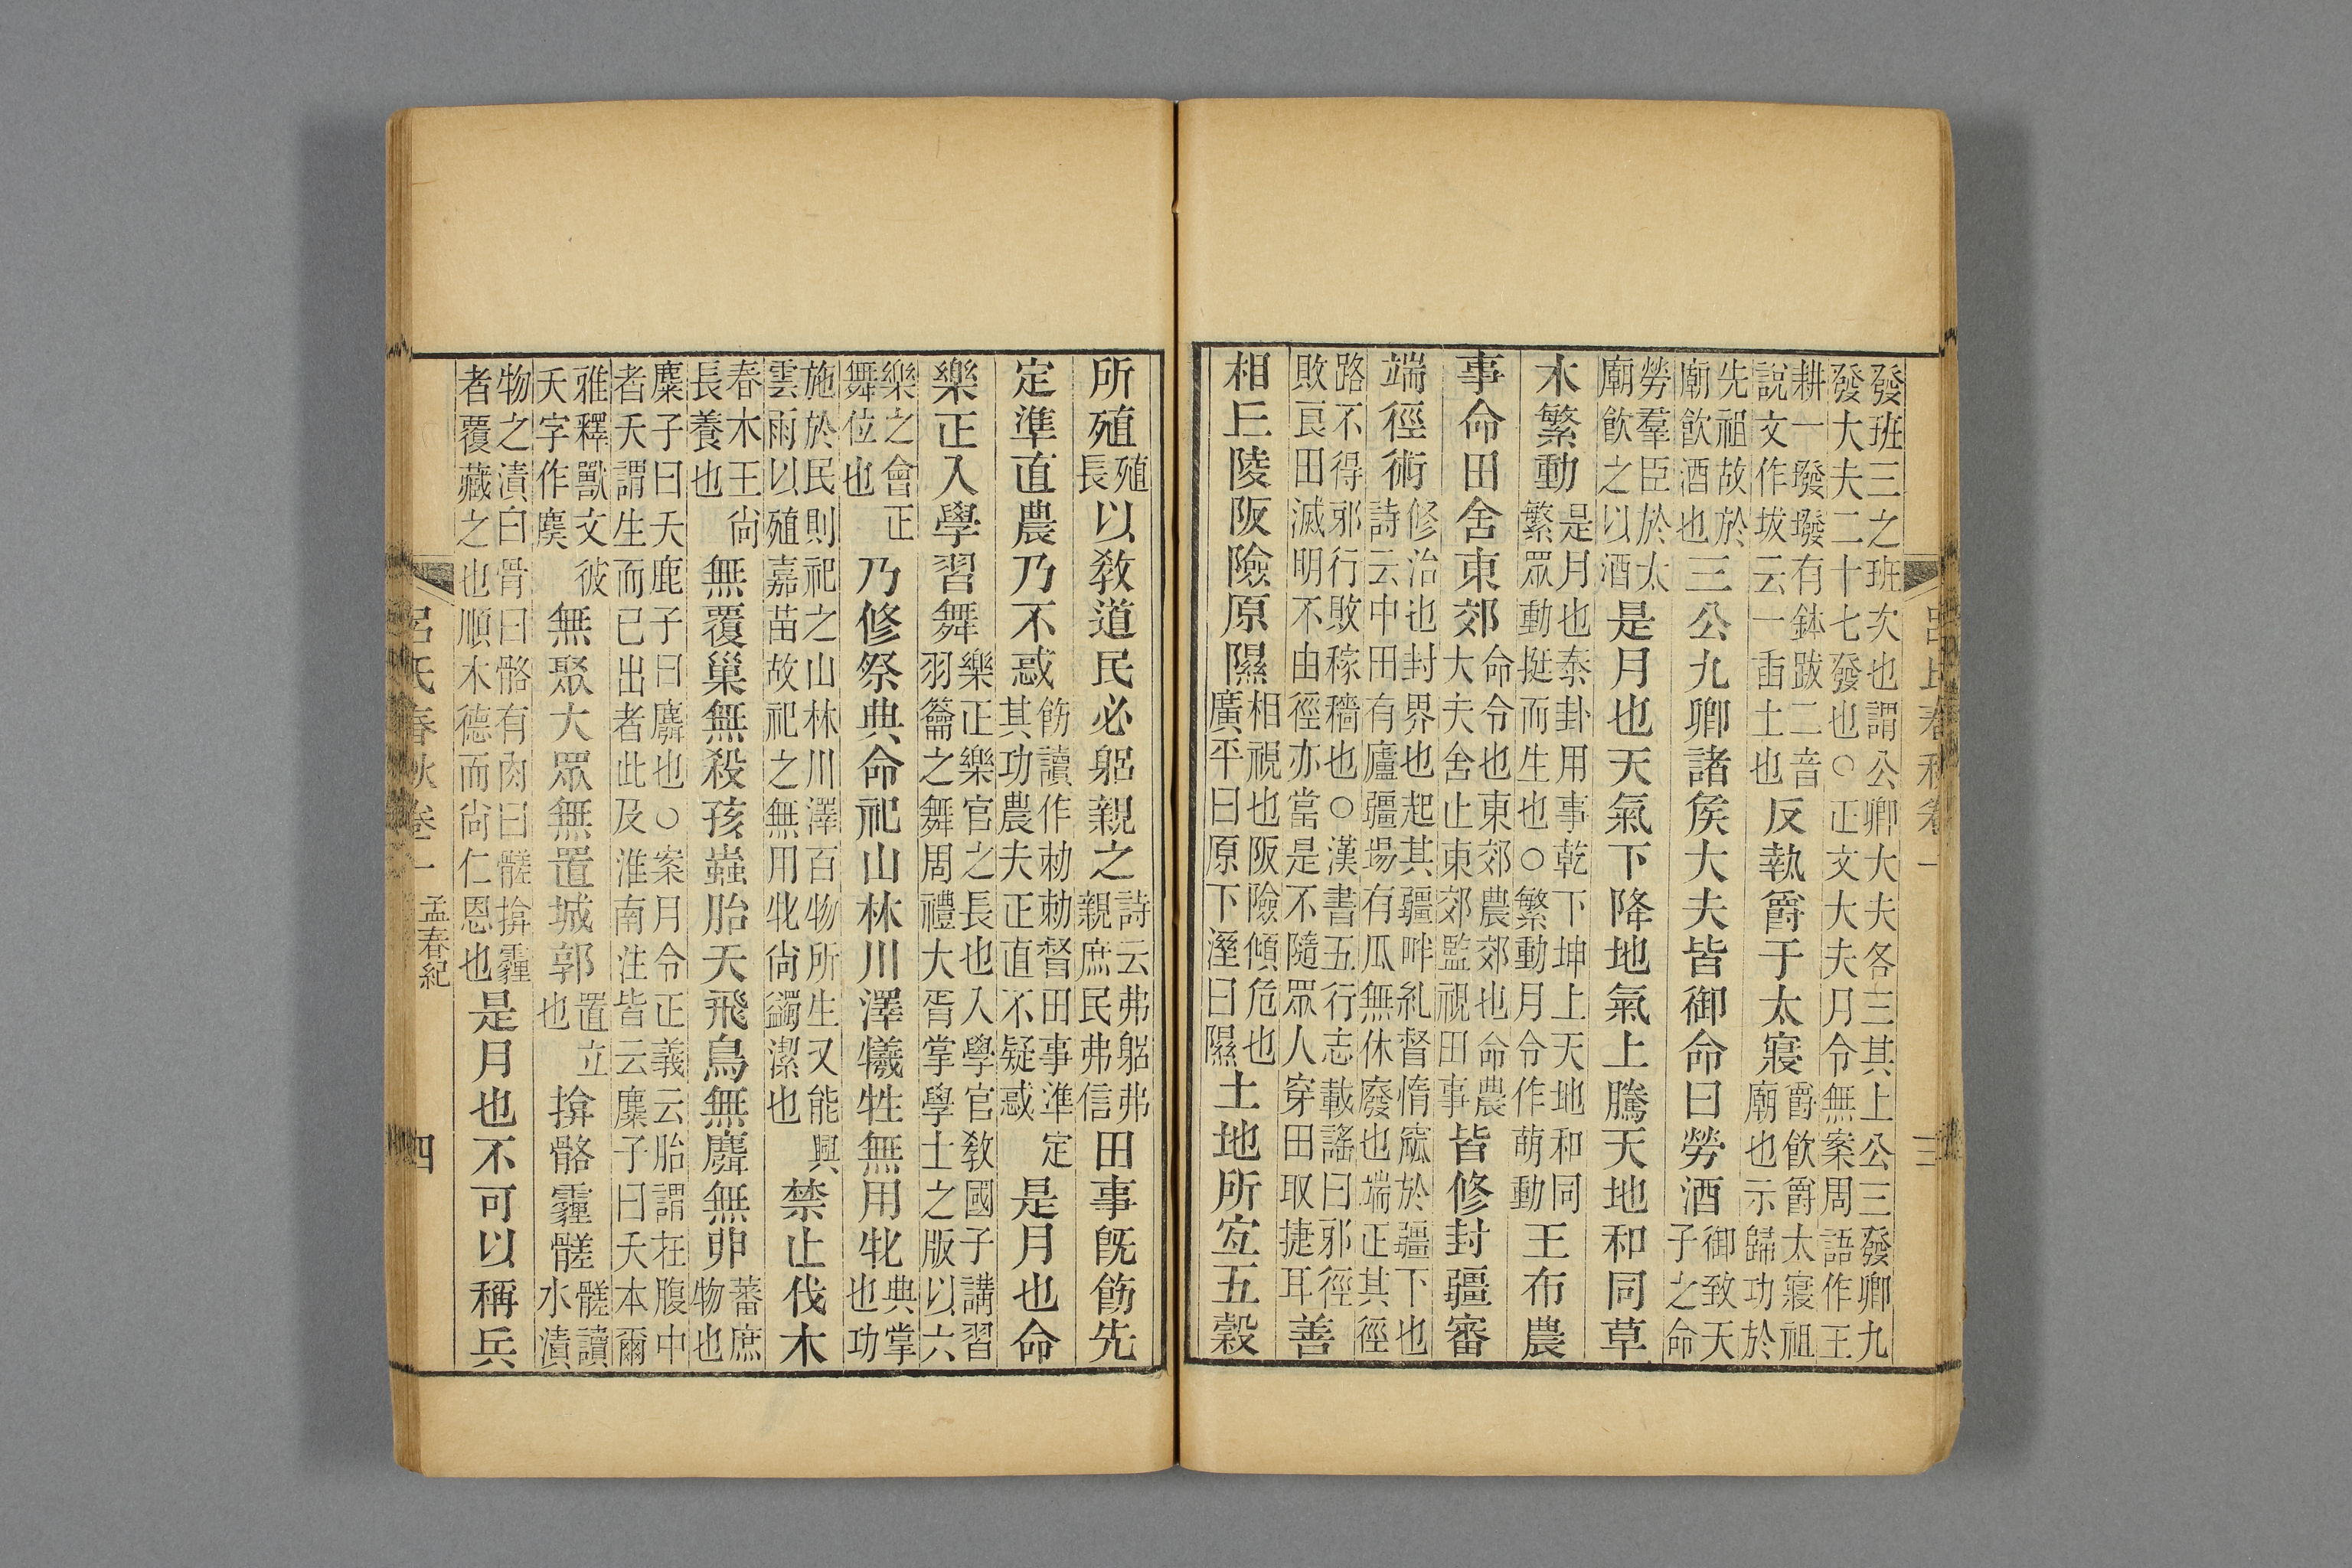 呂氏春秋卷一 三
發班三之班次也謂公卿大夫各三其上公三發卿九
發大夫二十七發也○正文大夫月令無案周語作王
耕一墢墢有鉢跋二音
說文作坺云一臿土也
反執爵于太寢
爵飲爵太寢祖
廟也示歸功於
先祖故於
廟飲酒也
三公九卿諸矦大夫皆御命曰勞酒
御致天
子之命
勞羣臣於太
廟飲之以酒
是月也天氣下降地氣上騰天地和同草
木繁動
是月也泰卦用事乾下坤上天地和同
繁眾動挺而生也○繁動月令作萌動
王布農
事命田舍東郊
命令也東郊農郊也命農
大夫舍止東郊監視田事
皆修封疆審
端徑術
修治也封界也起其疆畔糺督惰窳於疆下也
詩云中田有廬疆埸有瓜無休廢也端正其徑
路不得邪行敗稼穡也○漢書五行志載謠曰邪徑
敗良田滅明不由徑亦當是不隨眾人穿田取捷耳
善
相丘陵阪險原隰
相視也阪險傾危也
廣平曰原下溼曰隰
土地所宐五穀
所殖
殖
長
以敎道民必躬親之
詩云弗躬弗
親庶民弗信
田事旣飭先
定準直農乃不惑
飭讀作勑勑督田事準定
其功農夫正直不疑惑
是月也命
樂正入學習舞
樂正樂官之長也入學官敎國子講習
羽籥之舞周禮大胥掌學士之版以六
樂之會正
舞位也
乃修祭典命祀山林川澤犧牲無用牝
典掌
也功
施於民則祀之山林川澤百物所生又能興
雲雨以殖嘉苗故祀之無用牝尙蠲潔也
禁止伐木
春木王尙
長養也
無覆巢無殺孩蟲胎夭飛鳥無麛無卵
蕃庶
物也
麋子曰夭鹿子曰麛也○案月令正義云胎謂在腹中
者夭謂生而已出者此及淮南注皆云麋子曰夭本爾
雅釋獸文彼
夭字作麌
無聚大眾無置城郭
置立
也
揜骼霾髊
髊讀
水漬
物之漬白骨曰骼有肉曰髊揜霾
者覆藏之也順木德而尙仁恩也
是月也不可以稱兵
呂氏春秋卷一 孟春紀 四